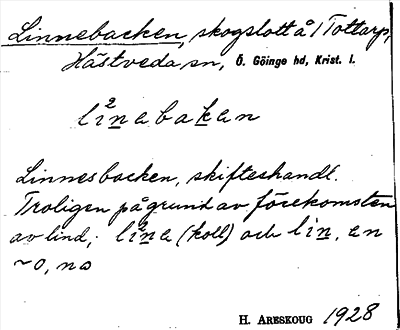 Linnebacken, skogslott å 1 Tottarp,
Hästveda sn, Ö. Göinge hd, Krist. l.
li²nebaken
Linnesbacken, skifteshandl.
Troligen på grund av förekomsten
av lind; li²ne (koll) och lin, en
~ o, na
H. Areskoug 1928